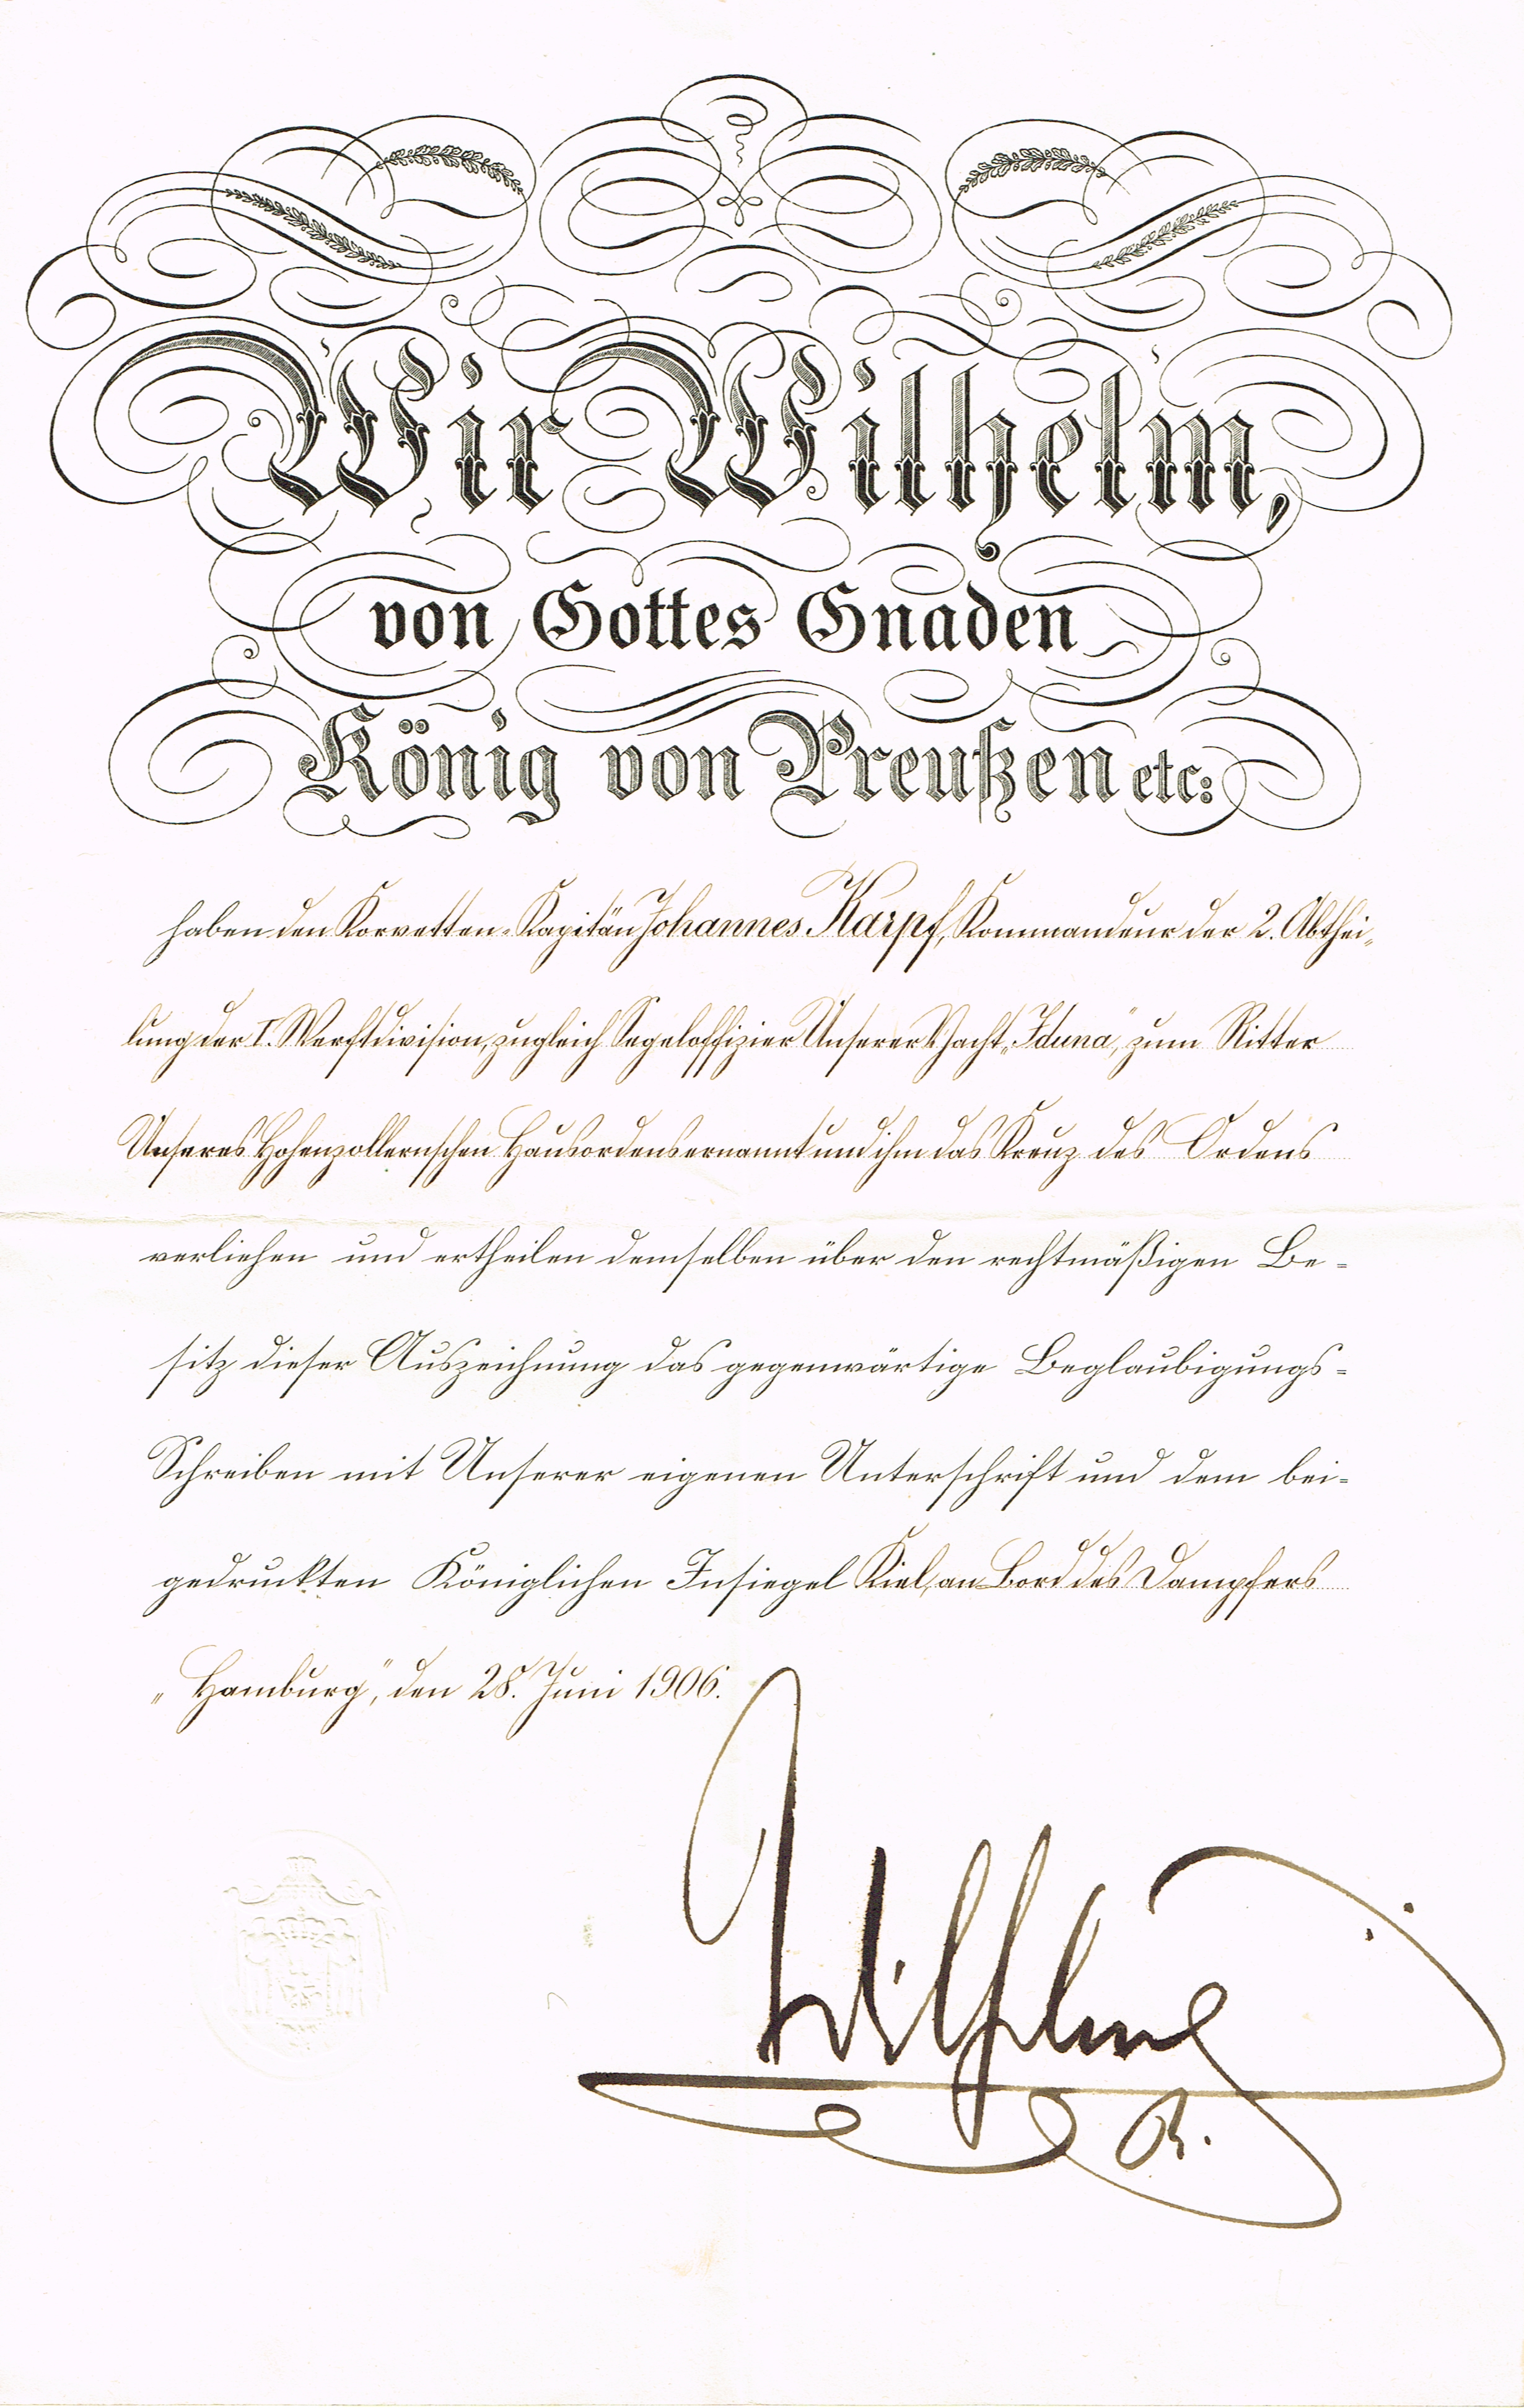 Wir Wilhelm,
von Gottes Gnaden
König von Preußen etc:
haben den Korvetten-Kapitän Johannes Karpf, Kommandeur der 2. Abthei-
lung der I. Werftdivision, zugleich Segeloffizier Unserer Yacht „Iduna“, zum Ritter
Unseres Hohenzollernschen Hausordens ernannt und ihm das Kreuz des Ordens
verliehen und ertheilen demselben über den rechtmäßigen Be-
sitz dieser Auszeichnung das gegenwärtige Beglaubigungs-
Schreiben mit Unserer eigenen Unterschrift und dem bei-
gedruckten Königlichen Insiegel Kiel, an Bord des Dampfers
„Hamburg“, den 28. Juni 1906.
Wilhelm
R.